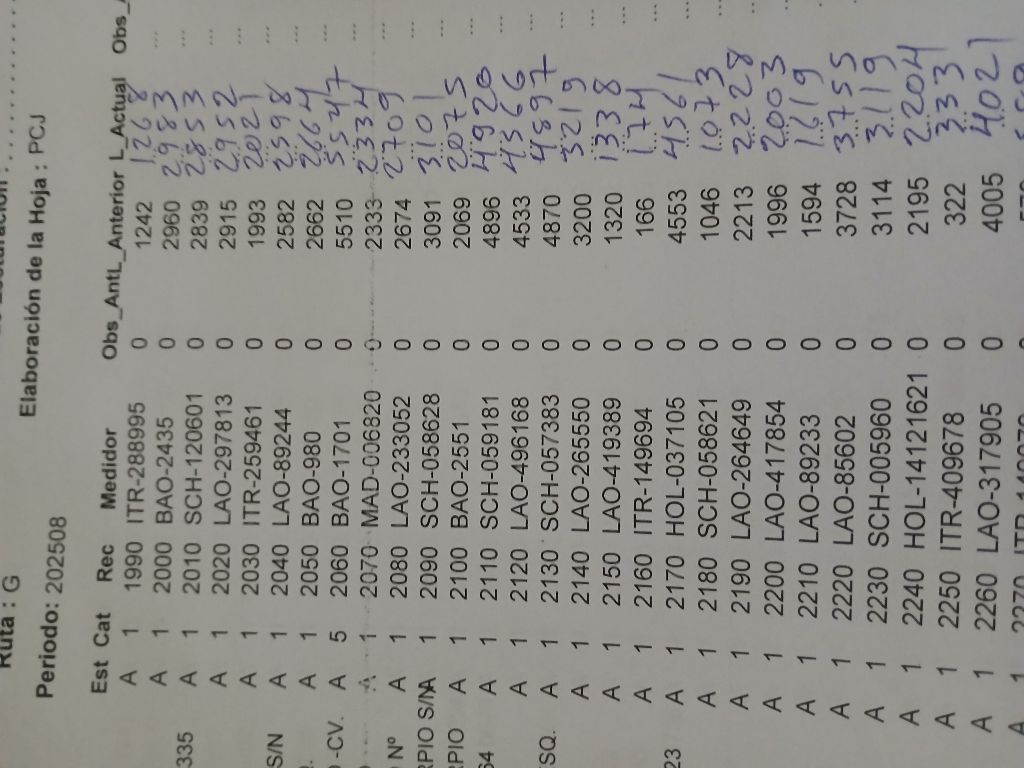 Ruta : G
Periodo: 202508 Elaboración de la Hoja : PCJ
Est Cat Rec Medidor Obs_AntL_Anterior L_Actual Obs_
A 1 1990 ITR-288995 0 1242 1268 ...
A 1 2000 BAO-2435 0 2960 2983 ...
335 A 1 2010 SCH-120601 0 2839 2853 ...
A 1 2020 LAO-297813 0 2915 2952 ...
A 1 2030 ITR-259461 0 1993 2021 ...
S/N A 1 2040 LAO-89244 0 2582 2598 ...
A 1 2050 BAO-980 0 2662 2664 ...
-CV. A 5 2060 BAO-1701 0 5510 5547 ...
A 1 2070 MAD-006820 0 2333 2334 ...
Nº A 1 2080 LAO-233052 0 2674 2709 ...
RPIO S/N A 1 2090 SCH-058628 0 3091 3101 ...
RPIO A 1 2100 BAO-2551 0 2069 2075 ...
64 A 1 2110 SCH-059181 0 4896 4920 ...
A 1 2120 LAO-496168 0 4533 4566 ...
SQ. A 1 2130 SCH-057383 0 4870 4897 ...
A 1 2140 LAO-265550 0 3200 3219 ...
A 1 2150 LAO-419389 0 1320 1338 ...
A 1 2160 ITR-149694 0 166 174 ...
23 A 1 2170 HOL-037105 0 4553 4561 ...
A 1 2180 SCH-058621 0 1046 1073 ...
A 1 2190 LAO-264649 0 2213 2228 ...
A 1 2200 LAO-417854 0 1996 2003 ...
A 1 2210 LAO-89233 0 1594 1619 ...
A 1 2220 LAO-85602 0 3728 3755 ...
A 1 2230 SCH-005960 0 3114 3119 ...
A 1 2240 HOL-14121621 0 2195 2204 ...
A 1 2250 ITR-409678 0 322 333 ...
A 1 2260 LAO-317905 0 4005 4021
A 1 2270